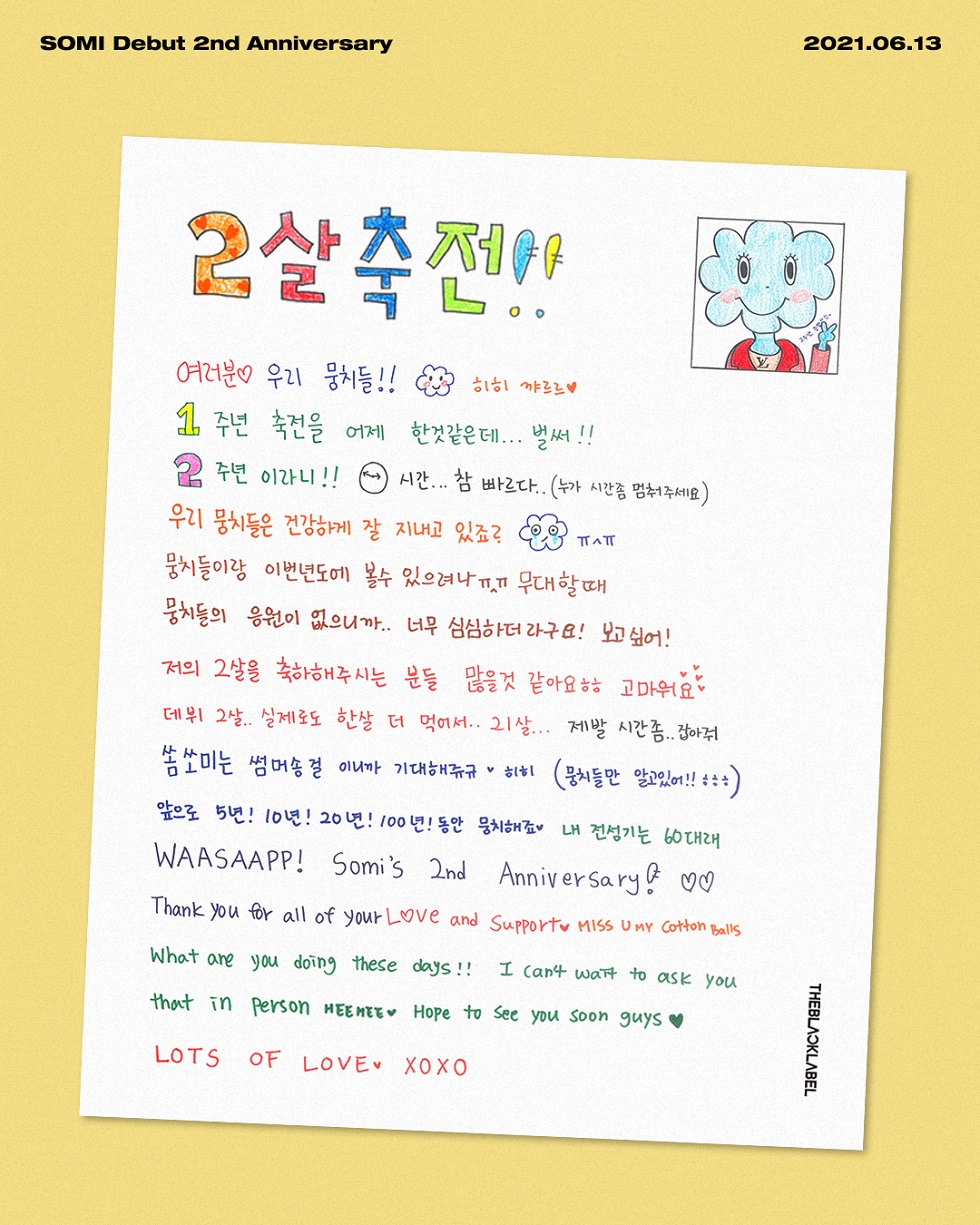 SOMI Debut 2nd Anniversary
2021.06.13
2살축전!!
여러분♡ 우리 뭉치들!! 히히 꺄르르♥
1 주년 축전을 어제 한것같은데... 벌써!!
2 주년 이라니!! 시간... 참 빠르다..(누가 시간좀 멈춰주세요)
우리 뭉치들은 건강하게 잘 지내고 있죠? ㅠㅅㅠ
뭉치들이랑 이번년도에 볼수 있으려나 ㅠㅅㅠ 무대할때
뭉치들의 응원이 없으니까.. 너무 심심하더라구요! 보고싶어!
저의 2살을 축하해주시는 분들 많을것 같아요ㅎㅎ 고마워요
데뷔 2살.. 실제로도 한살 더 먹어서.. 21살... 제발 시간좀..잡아줘
쏨쏘미는 썸머송걸 이니까 기대해쥬규♥ 히히 (뭉치들만 알고있어!! ㅎㅎㅎ)
앞으로 5년! 10년! 20년! 100년! 동안 뭉치해죠♥ 내 전성기는 60대래
WAASAAPP! Somi's 2nd Anniversary! ♡♡
Thank you for all of your L♡ve and Support♥ MISS U MY Cotton Balls
What are you doing these days!! I can't wait to ask you
that in person HEEHEE♥ Hope to see you soon guys ♥
LOTS OF LOVE♥ XOXO
LV
THEBLACKLABEL